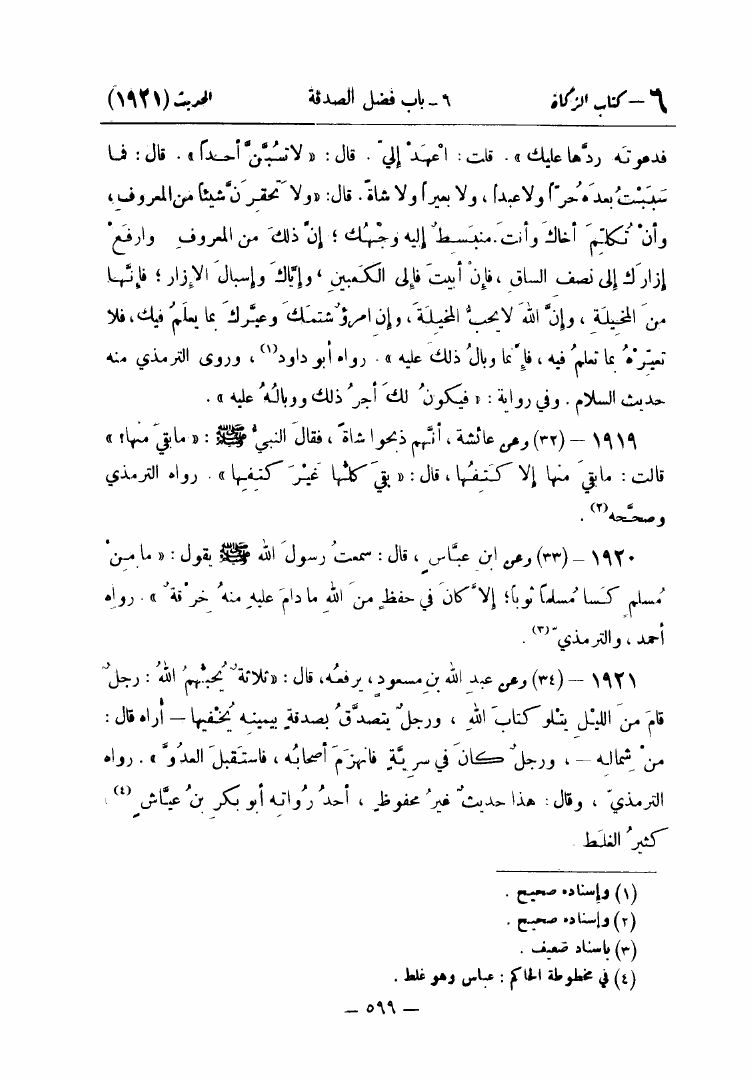 ٦ – كتاب الزكاة ٩ - باب فضل الصدقة الحديث (١٩٢١)
فدعوتَه ردَّها عليك». قلت: اعْهَدْ إليّ. قال: «لاتسُبَّنَّ أحداً». قال: فما
سَبَبْتُ بعدَه حُرّاً ولاعبداً، ولا بعيراً ولا شاةً. قال: «ولا تَحقِرَنَّ شيئاً منَ المعروفِ،
وأنْ تُكلِّمَ أخاكَ وأنتَ منبَسِطٌ إليه وجْهُك؛ إنَّ ذلكَ منَ المعروفِ وارفَعْ
إزارَك إلى نصف الساقِ، فإنْ أبيتَ فإلى الكعبينِ، وإيَّاكَ وإسبالَ الإزارِ؛ فإنَّها
منَ المَخِيلَةِ، وإنَّ اللهَ لايحبُّ المخِيلَةَ، وإنِ امرؤٌ شتمكَ وعيَّركَ بما يعلَمُ فيك، فلا
تعيِّرْهُ بما تعلمُ فيه، فإنَّما وبالُ ذلكَ عليه». رواه أبو داود(١)، وروى الترمذي منه
حديث السلام. وفي رواية: «فيكونُ لكَ أجرُ ذلكَ ووبالُهُ عليه».
١٩١٩ – (٣٢) وعن عائشة، أنَّهم ذبحوا شاةً، فقالَ النبيُّ ﷺ: «مابقيَ منها؟»
قالت: مابقيَ منها إلا كَتِفُها، قال: «بقيَ كلُّها غيْرَ كتِفِها». رواه الترمذي
وصحَّحه(٢).
١٩٢٠ – (٣٣) وعن ابنِ عبَّاسٍ، قال: سمعتُ رسولَ اللهِ ﷺ يقول: «ما مِنْ
مُسلمٍ كَسا مُسلماً ثوباً؛ إلاَّ كانَ في حفظٍ منَ اللهِ ما دامَ عليهِ منهُ خِرْقةٌ». رواه
أحمد، والترمذيّ(٣).
١٩٢١ – (٣٤) وعن عبدِ اللهِ بنِ مسعودٍ، يرفعُه، قال: «ثلاثةٌ يُحبُّهمُ اللهُ: رجلٌ
قامَ منَ الليْلِ يتْلو كتابَ اللهِ، ورجلٌ يتصدَّقُ بصدقةٍ بيمينِه يُخْفيها – أُراه قال:
منْ شِمالِه –، ورجلٌ كانَ في سرِيَّةٍ فانهزَمَ أصحابُه، فاستَقبلَ العدُوَّ». رواه
الترمذيّ، وقال: هذا حديثٌ غيرُ محفوظٍ، أحدُ رُواتِه أبو بكرِ بنُ عيَّاشٍ(٤)،
كثيرُ الغلَط.
(١) وإسناده صحيح.
(٢) وإسناده صحيح.
(٣) بإسناد ضعيف.
(٤) في مخطوطة الحاكم: عباس وهو غلط.
– ٥٩٩ –